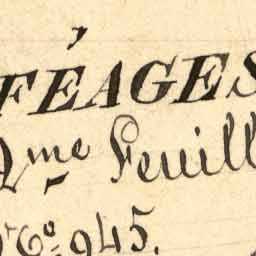 FÉAGES
2me Feuill
Fo 945.